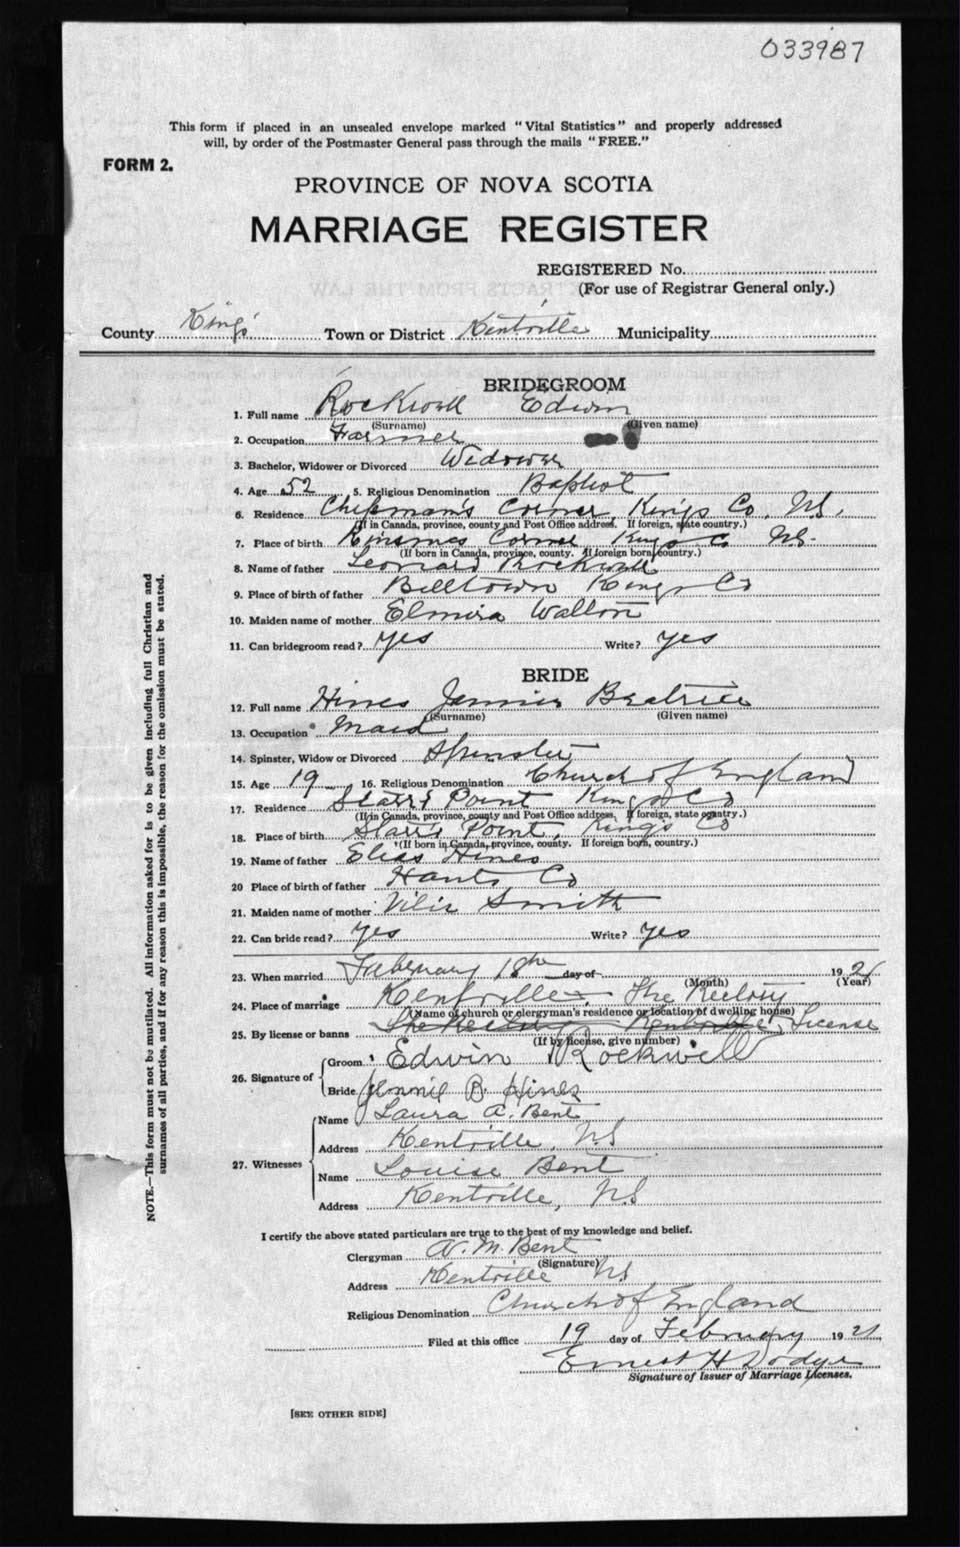 033987
This form if placed in an unsealed envelope marked "Vital Statistics" and properly addressed
will, by order of the Postmaster General pass through the mails "FREE."
FORM 2.
PROVINCE OF NOVA SCOTIA
MARRIAGE REGISTER
REGISTERED No.
(For use of Registrar General only.)
County King's Town or District Kentville Municipality
BRIDEGROOM
1. Full name Rockwell Edwin
(Surname) (Given name)
2. Occupation Farmer
3. Bachelor, Widower or Divorced Widower
4. Age 52 5. Religious Denomination Baptist
6. Residence Chipman's Corner, Kings Co, NS.
(If in Canada, province, county and Post Office address. If foreign, state country.)
7. Place of birth Corner Kings Co NS.
(If born in Canada, province, county. If foreign born, country.)
8. Name of father Leonard Rockwell
9. Place of birth of father Billtown Kings Co
10. Maiden name of mother Elmira Walton
11. Can bridegroom read? Yes Write? Yes
BRIDE
12. Full name Hines Jennie Beatrice
(Surname) (Given name)
13. Occupation Maid
14. Spinster, Widow or Divorced Spinster
15. Age 19 16. Religious Denomination Church of England
17. Residence Starr's Point Kings Co
(If in Canada, province, county and Post Office address. If foreign, state country.)
18. Place of birth Starr's Point, Kings Co
(If born in Canada, province, county. If foreign born, country.)
19. Name of father Elias Hines
20 Place of birth of father Hants Co
21. Maiden name of mother Smith
22. Can bride read? Yes Write? Yes
23. When married February 18th day of 1921
(Month) (Year)
24. Place of marriage Kentville, The Rectory
(Name of church or clergyman's residence or location of dwelling house)
25. By license or banns The Rectory Kentville, License
(If by license, give number)
26. Signature of
Groom Edwin Rockwell
Bride Jennie B Hines
27. Witnesses
Name Laura A. Bent
Address Kentville, NS
Name Louise Bent
Address Kentville, NS
I certify the above stated particulars are true to the best of my knowledge and belief.
Clergyman A. M. Bent
(Signature)
Address Kentville NS
Religious Denomination Church of England
Filed at this office 19 day of February 1921
Ernest H Dodge
Signature of Issuer of Marriage Licenses.
[SEE OTHER SIDE]
NOTE.—This form must not be mutilated. All information asked for is to be given including full Christian and
surnames of all parties, and if for any reason this is impossible, the reason for the omission must be stated.